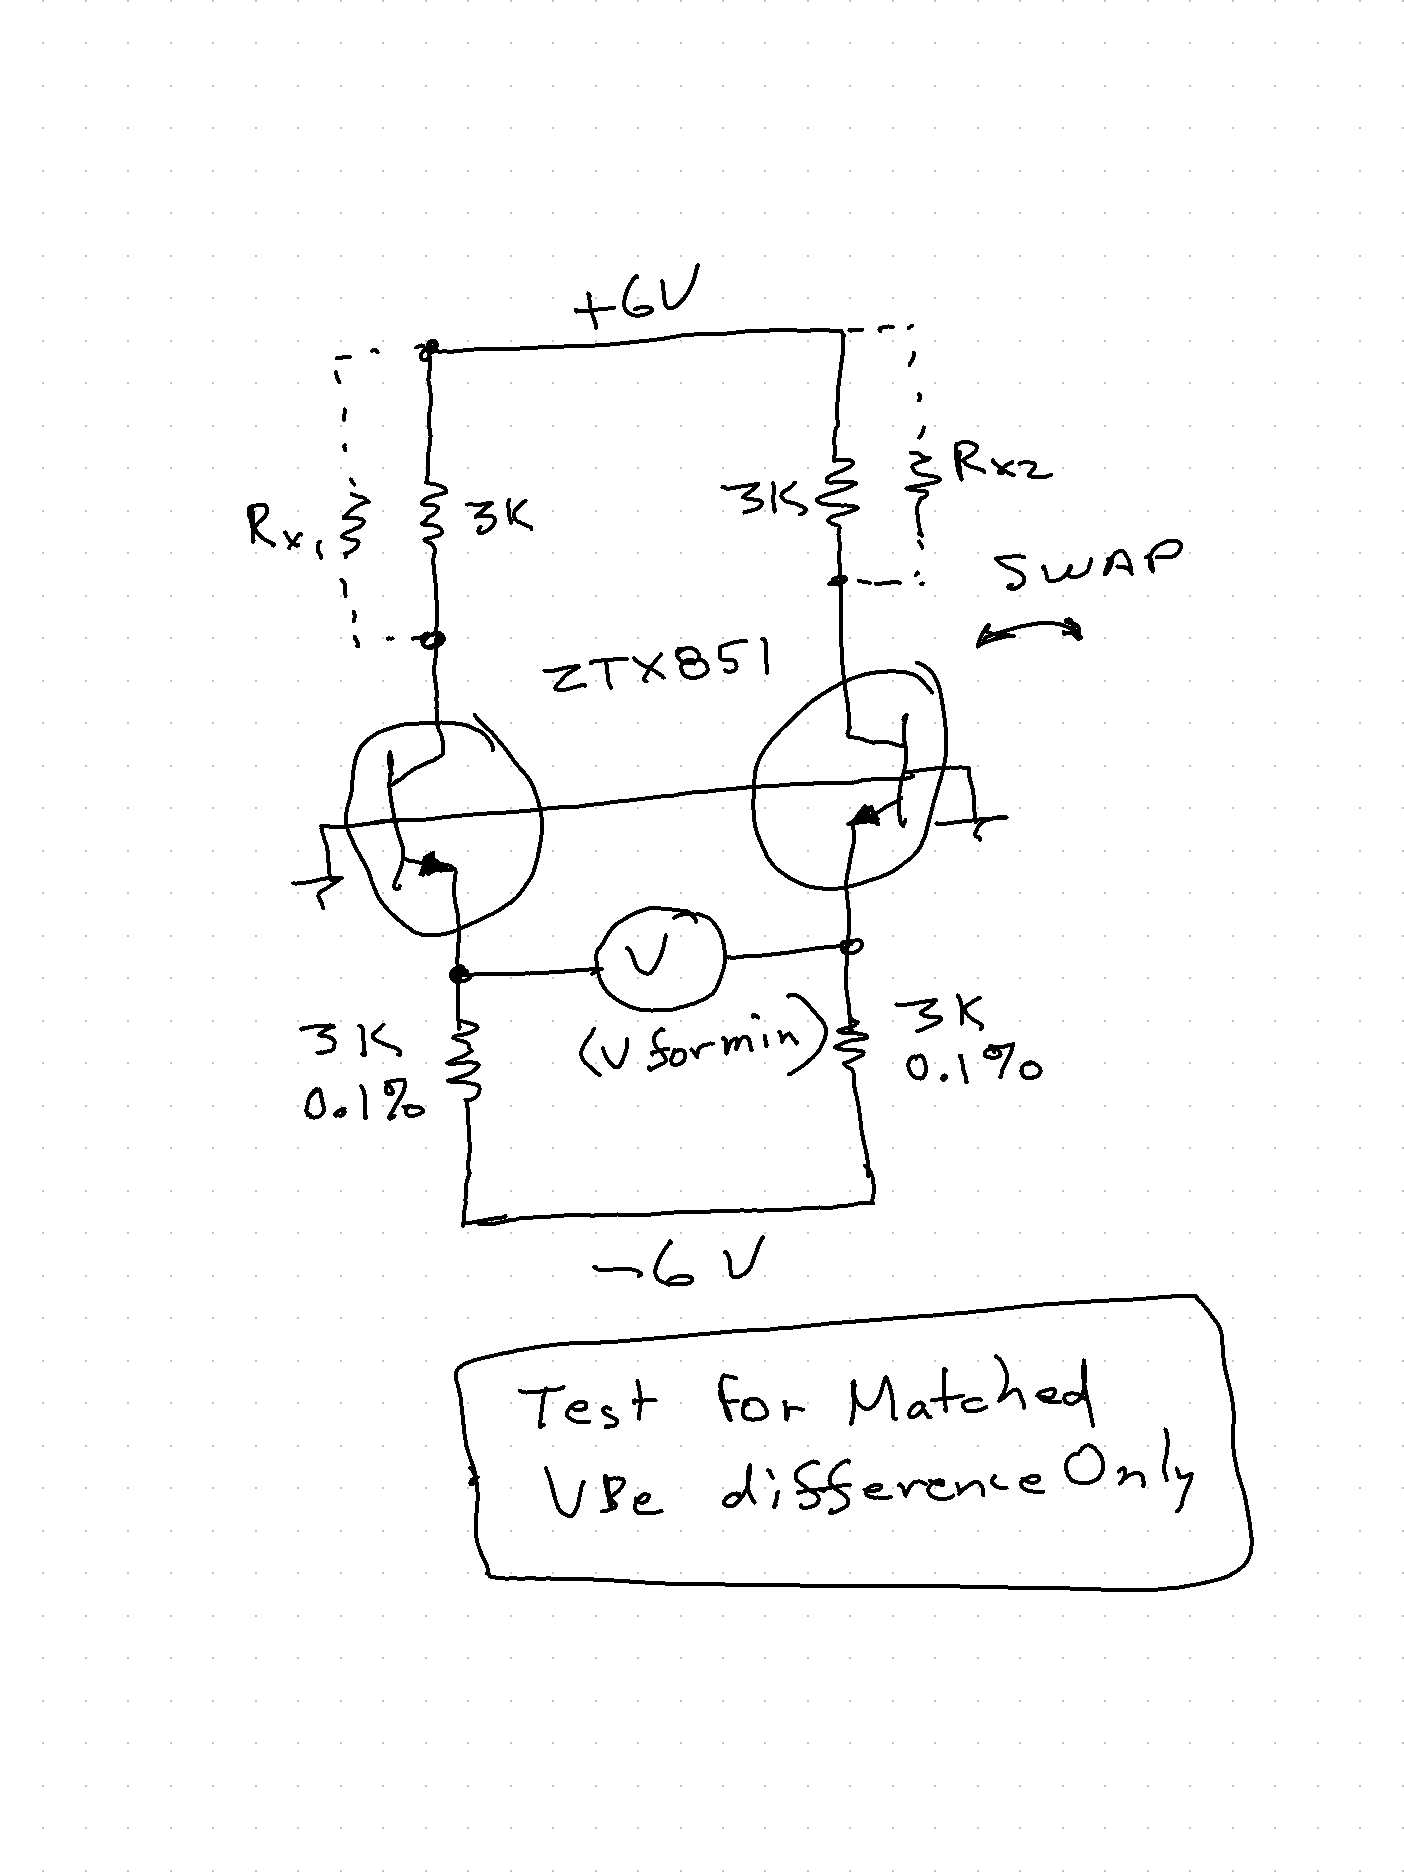 +6V
Rx1
3K
3K
Rx2
SWAP
ZTX851
V
(V for min)
3K
0.1%
3K
0.1%
-6 V
Test for Matched
VBe difference Only